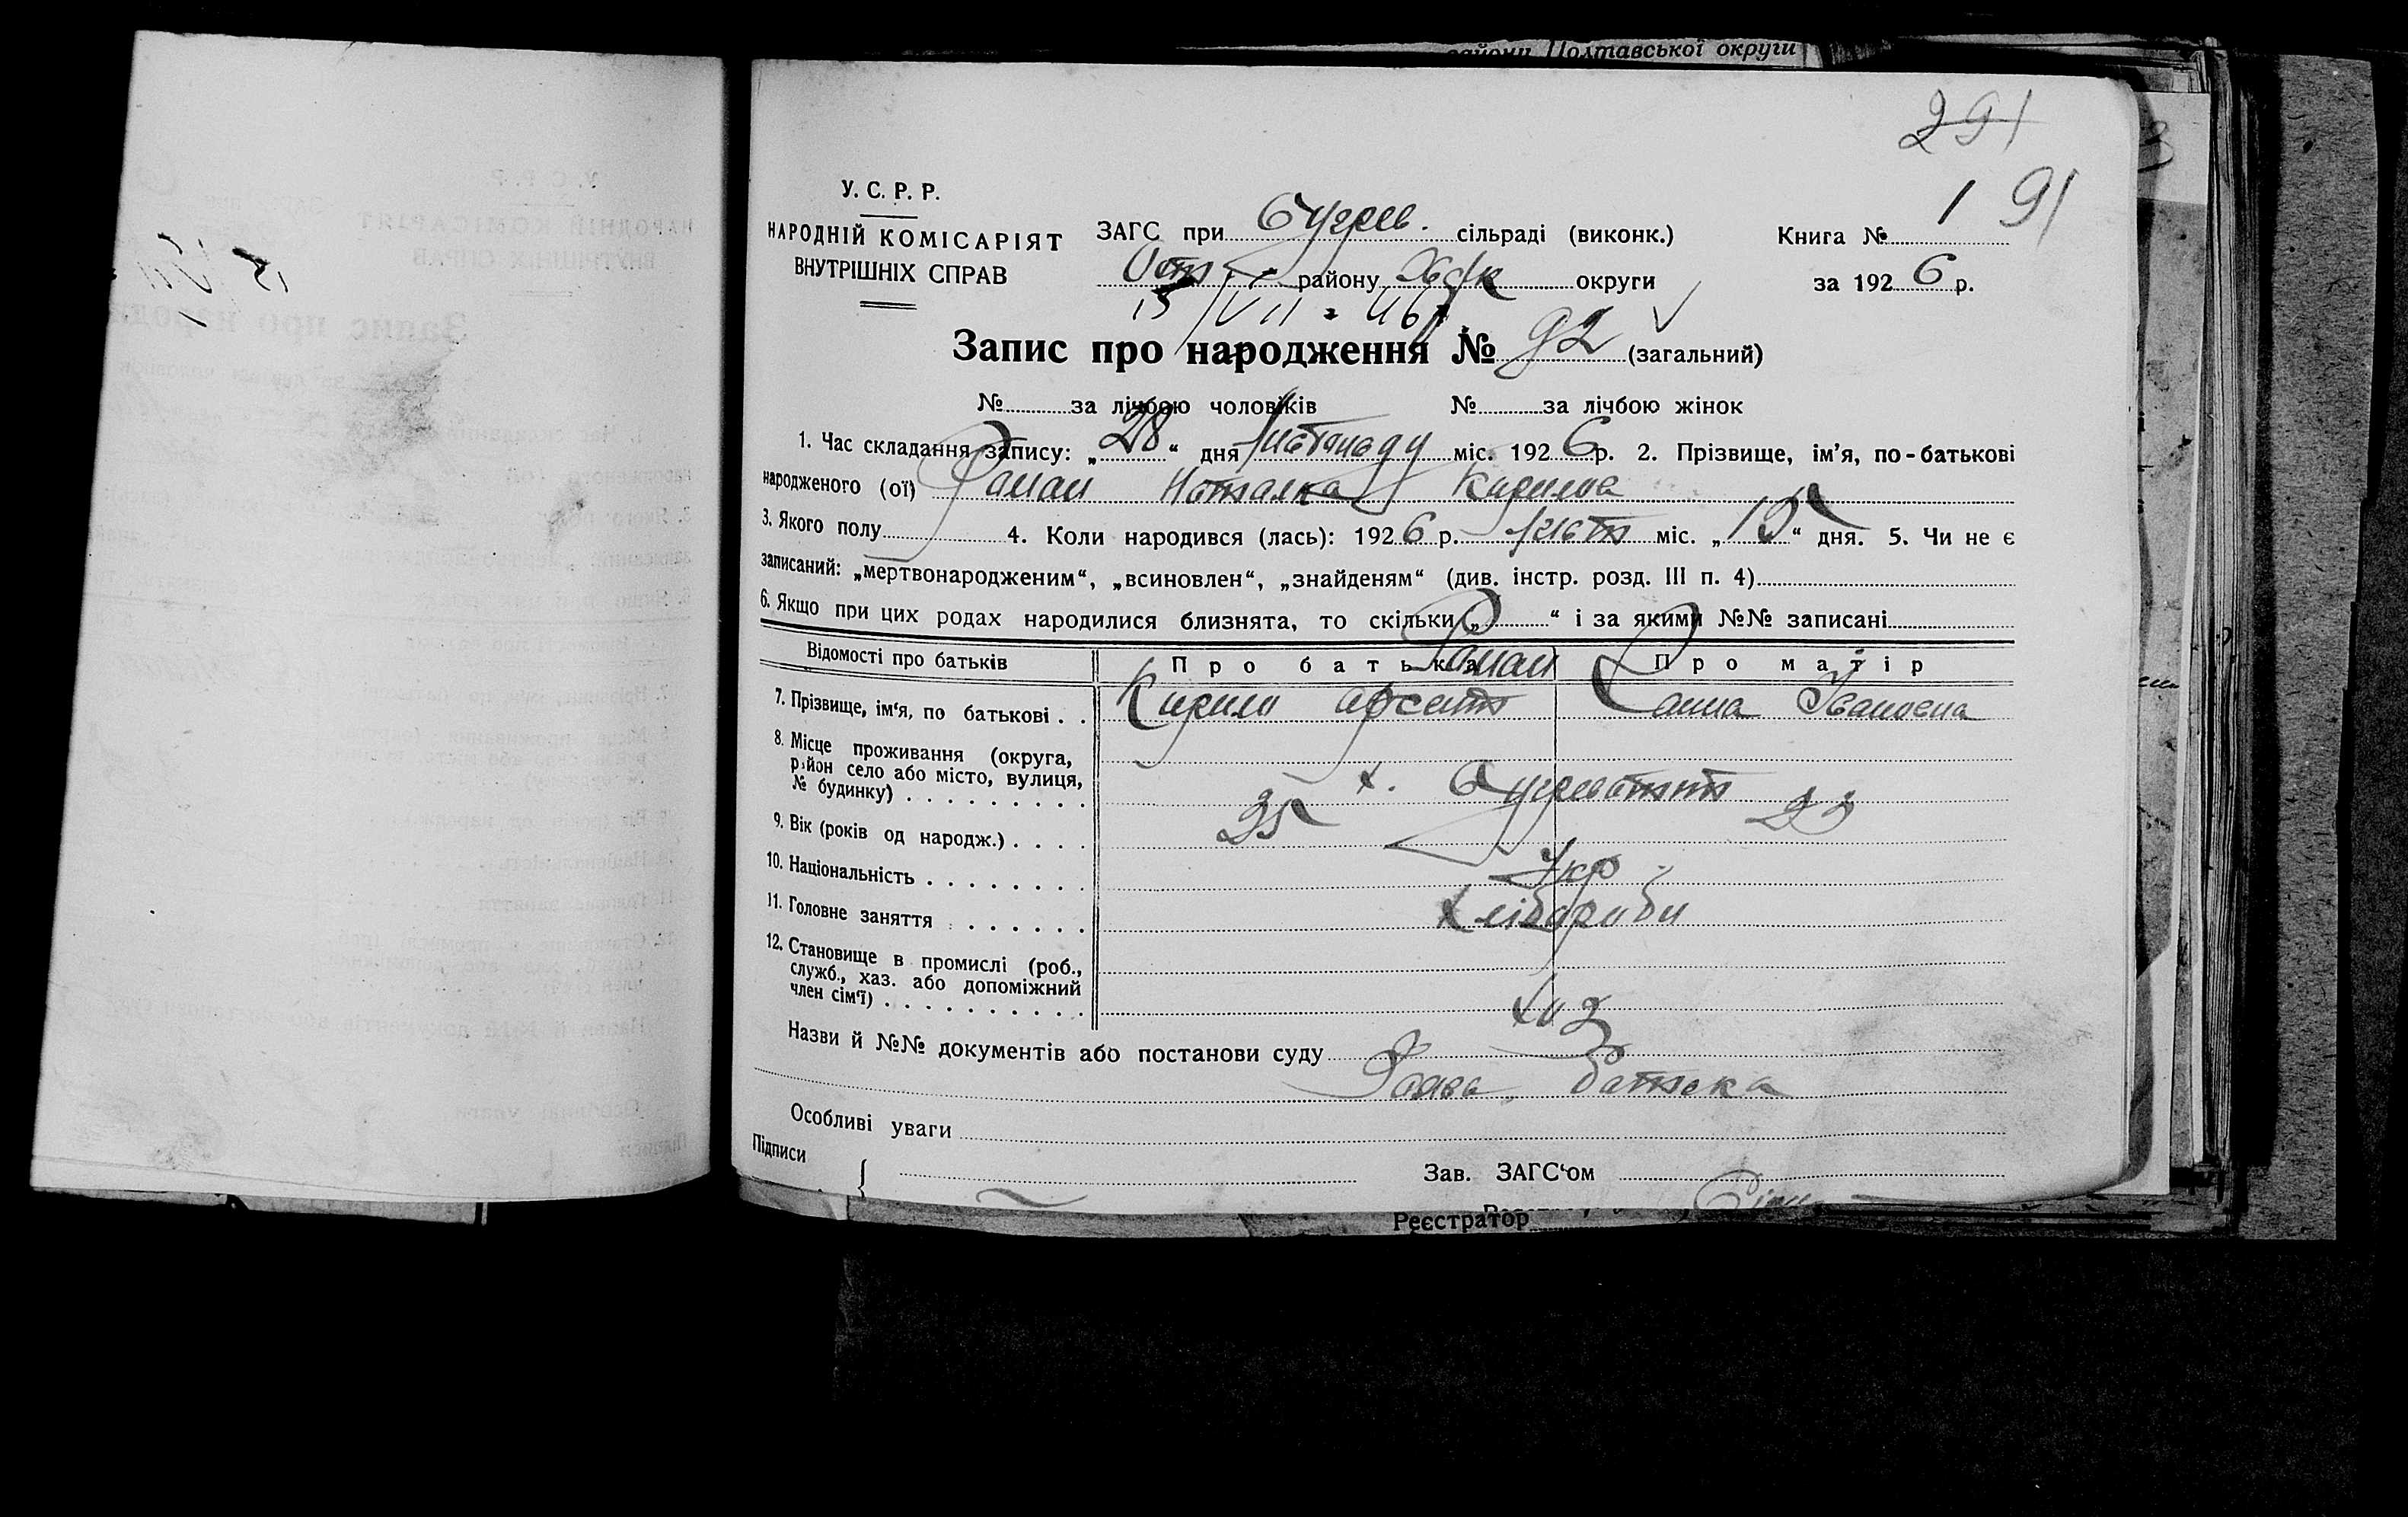 райони Полтавської округи
291
У. С. Р. Р.
НАРОДНІЙ КОМІСАРІЯТ
ВНУТРІШНІХ СПРАВ
ЗАГС при сільраді (виконк.)
району округи
Книга № 1 91
за 1926 р.
15/VII - 46
Запис про народження № 92 (загальний)
№ за лічбою чоловіків № за лічбою жінок
1. Час складання запису: „28“ дня листопаду міс. 1926 р. 2. Прізвище, ім'я, по-батькові
народженого (ої) Наталка Кирилва
3. Якого полу 4. Коли народився (лась): 1926 р. лист міс. „ “ дня. 5. Чи не є
записаний: „мертвонародженим“, „всиновлен“, „знайденям“ (див. інстр. розд. III п. 4)
6. Якщо при цих родах народилися близнята, то скільки „ “ і за якими №№ записані
Відомості про батьків Про батька Про матір
7. Прізвище, ім'я, по батькові . . Кирило Арсент Ганна Івановна
8. Місце проживання (округа,
район село або місто, вулиця,
№ будинку) х.
9. Вік (років од народж.) 25 23
10. Національність Укр
11. Головне заняття хлібороби
12. Становище в промислі (роб.,
служб., хаз. або допоміжний
член сім'ї) хаз
Назви й №№ документів або постанови суду
Заява батька
Особливі уваги
Підписи
Зав. ЗАГС'ом
Реєстратор